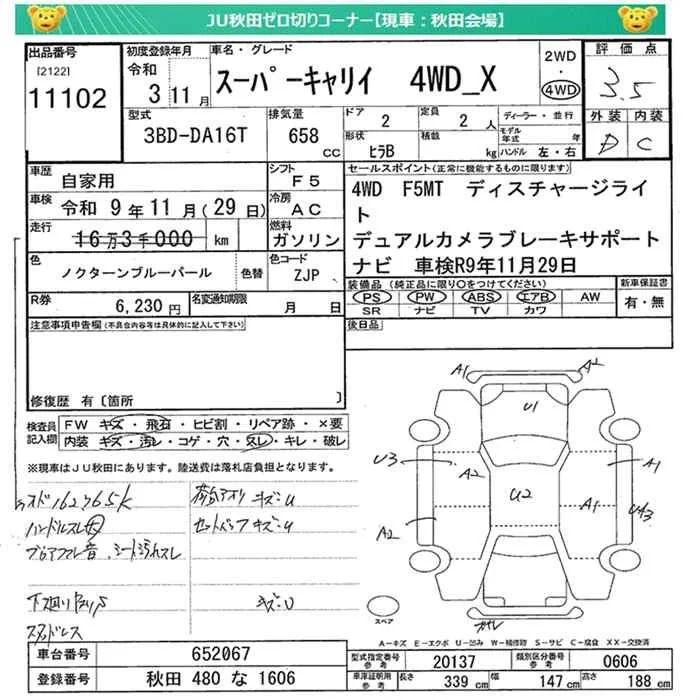 JU秋田ゼロ切りコーナー【現車：秋田会場】
出品番号
[2122]
11102
初度登録年月
令和
3 11月
車名・グレード
スーパーキャリイ 4WD_X
2WD
・
4WD
評価点
3.5
外装 内装
D C
型式
3BD-DA16T
排気量
658
CC
ドア
2
定員
2 人
形状
ヒラB
積載
kg
ディーラー・並行
モデル年式 年
ハンドル 左・右
車歴
自家用
シフト
F5
車検 令和 9年 11月(29日)
冷房
AC
走行
16万3千000 km
燃料
ガソリン
色
ノクターンブルーパール
色替
色コード
ZJP
セールスポイント(正常に機能するものに限ります)
4WD F5MT ディスチャージライ
ト
デュアルカメラブレーキサポート
ナビ 車検R9年11月29日
R券
6,230 円
名変通知期限
月 日
装備品(純正品に限り〇をつけてください)
PS PW ABS エアB AW
SR ナビ TV カワ
新車保証書
有・無
後日品
注意事項申告欄(不具合内容等は具体的に記入して下さい)
修復歴 有〔箇所 〕
検査員
記入欄
FW キズ・飛石・ヒビ割・リペア跡・×要
内装 キズ・汚レ・コゲ・穴・スレ・キレ・破レ
※現車はJU秋田にあります。陸送費は落札店負担となります。
162765K
荷台アオリ キズ・U
ハンドルスレ
キズ・U
シート汚れスレ
キズ・U
A1 A2
U1
U3
A2
A1
U2
A1
A2
U3
スペア
A-キズ E-エクボ U-凹み W-補修跡 S-サビ C-腐食 XX-交換済
車台番号
652067
型式指定番号
参考
20137
類別区分番号
参考
0606
登録番号
秋田 480 な 1606
車庫証明用
参考
長さ
339 cm
幅
147 cm
高さ
188 cm